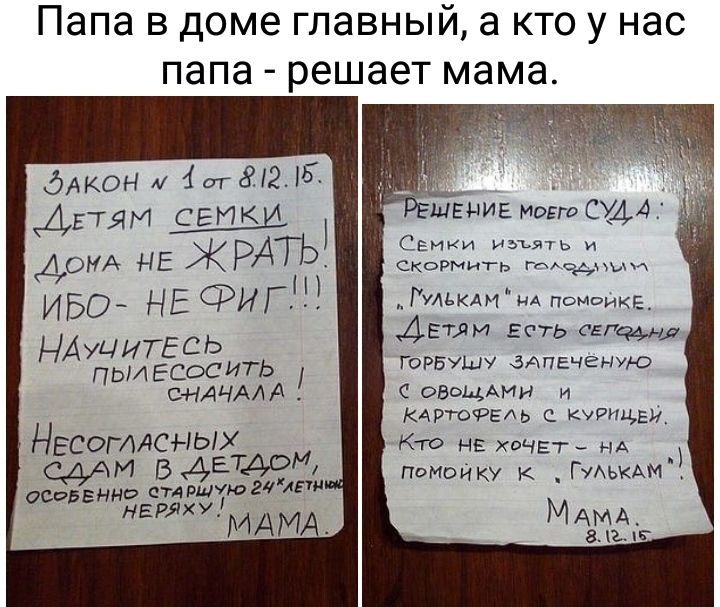 Папа в доме главный, а кто у нас
папа - решает мама.
ЗАКОН № 1 от 8.12.15.
ДЕТЯМ СЕМКИ
ДОМА НЕ ЖРАТЬ!
ИБО - НЕ ФИГ!!!
НАУЧИТЕСЬ
ПЫЛЕСОСИТЬ
СНАЧАЛА!
НЕСОГЛАСНЫХ
СДАМ В ДЕТДОМ,
ОСОБЕННО СТАРШУЮ 24ХЛЕТНЮЮ
НЕРЯХУ!
МАМА.
РЕШЕНИЕ МОЕГО СУДА:
СЕМКИ ИЗЪЯТЬ И
СКОРМИТЬ ГОЛОДНЫМ
„ГУЛЬКАМ" НА ПОМОЙКЕ.
ДЕТЯМ ЕСТЬ СЕГОДНЯ
ГОРБУШУ ЗАПЕЧЁНУЮ
С ОВОЩАМИ И
КАРТОФЕЛЬ С КУРИЦЕЙ.
КТО НЕ ХОЧЕТ - НА
ПОМОЙКУ К „ГУЛЬКАМ"!
МАМА.
8.12.15